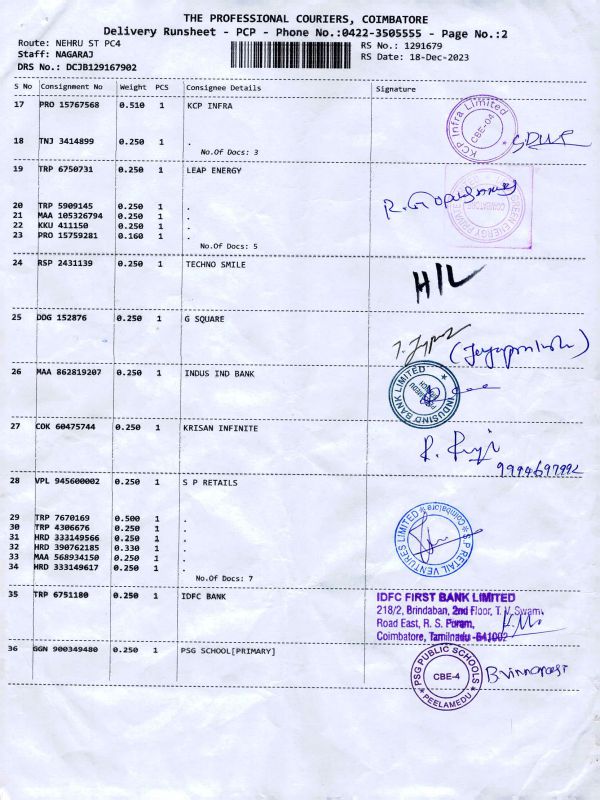 THE PROFESSIONAL COURIERS, COIMBATORE
Delivery Runsheet - PCP - Phone No.:0422-3505555 - Page No.:2
Route: NEHRU ST PC4
Staff: NAGARAJ
DRS No.: DCJB129167902
RS No.: 1291679
RS Date: 18-Dec-2023
S No Consignment No Weight PCS Consignee Details Signature
17 PRO 15767568 0.510 1 KCP INFRA
KCP Infra Limited
CBE-04
18 TNJ 3414899 0.250 1 .
No.Of Docs: 3
19 TRP 6750731 0.250 1 LEAP ENERGY
20 TRP 5909145 0.250 1 .
21 MAA 105326794 0.250 1 .
22 KKU 411150 0.250 1 .
23 PRO 15759281 0.160 1 .
No.Of Docs: 5
GREEN ENERGY PRIVATE
COIMBATORE
24 RSP 2431139 0.250 1 TECHNO SMILE
H/L
25 DDG 152876 0.250 1 G SQUARE
26 MAA 862819207 0.250 1 INDUS IND BANK
INDUSIND BANK LIMITED
27 COK 60475744 0.250 1 KRISAN INFINITE
9994697992
28 VPL 945600002 0.250 1 S P RETAILS
29 TRP 7670169 0.500 1 .
30 TRP 4306676 0.250 1 .
31 HRD 333149566 0.250 1 .
32 HRD 390762185 0.330 1 .
33 MAA 568934150 0.250 1 .
34 HRD 333149617 0.250 1 .
No.Of Docs: 7
S.P RETAIL VENTURES LIMITED
Coimbatore
35 TRP 6751180 0.250 1 IDFC BANK
IDFC FIRST BANK LIMITED
218/2, Brindaban, 2nd Floor, T. V. Swamy
Road East, R. S. Puram,
Coimbatore, Tamilnadu - 641002
36 GGN 900349480 0.250 1 PSG SCHOOL[PRIMARY]
PSG PUBLIC SCHOOLS
CBE-4
PEELAMEDU